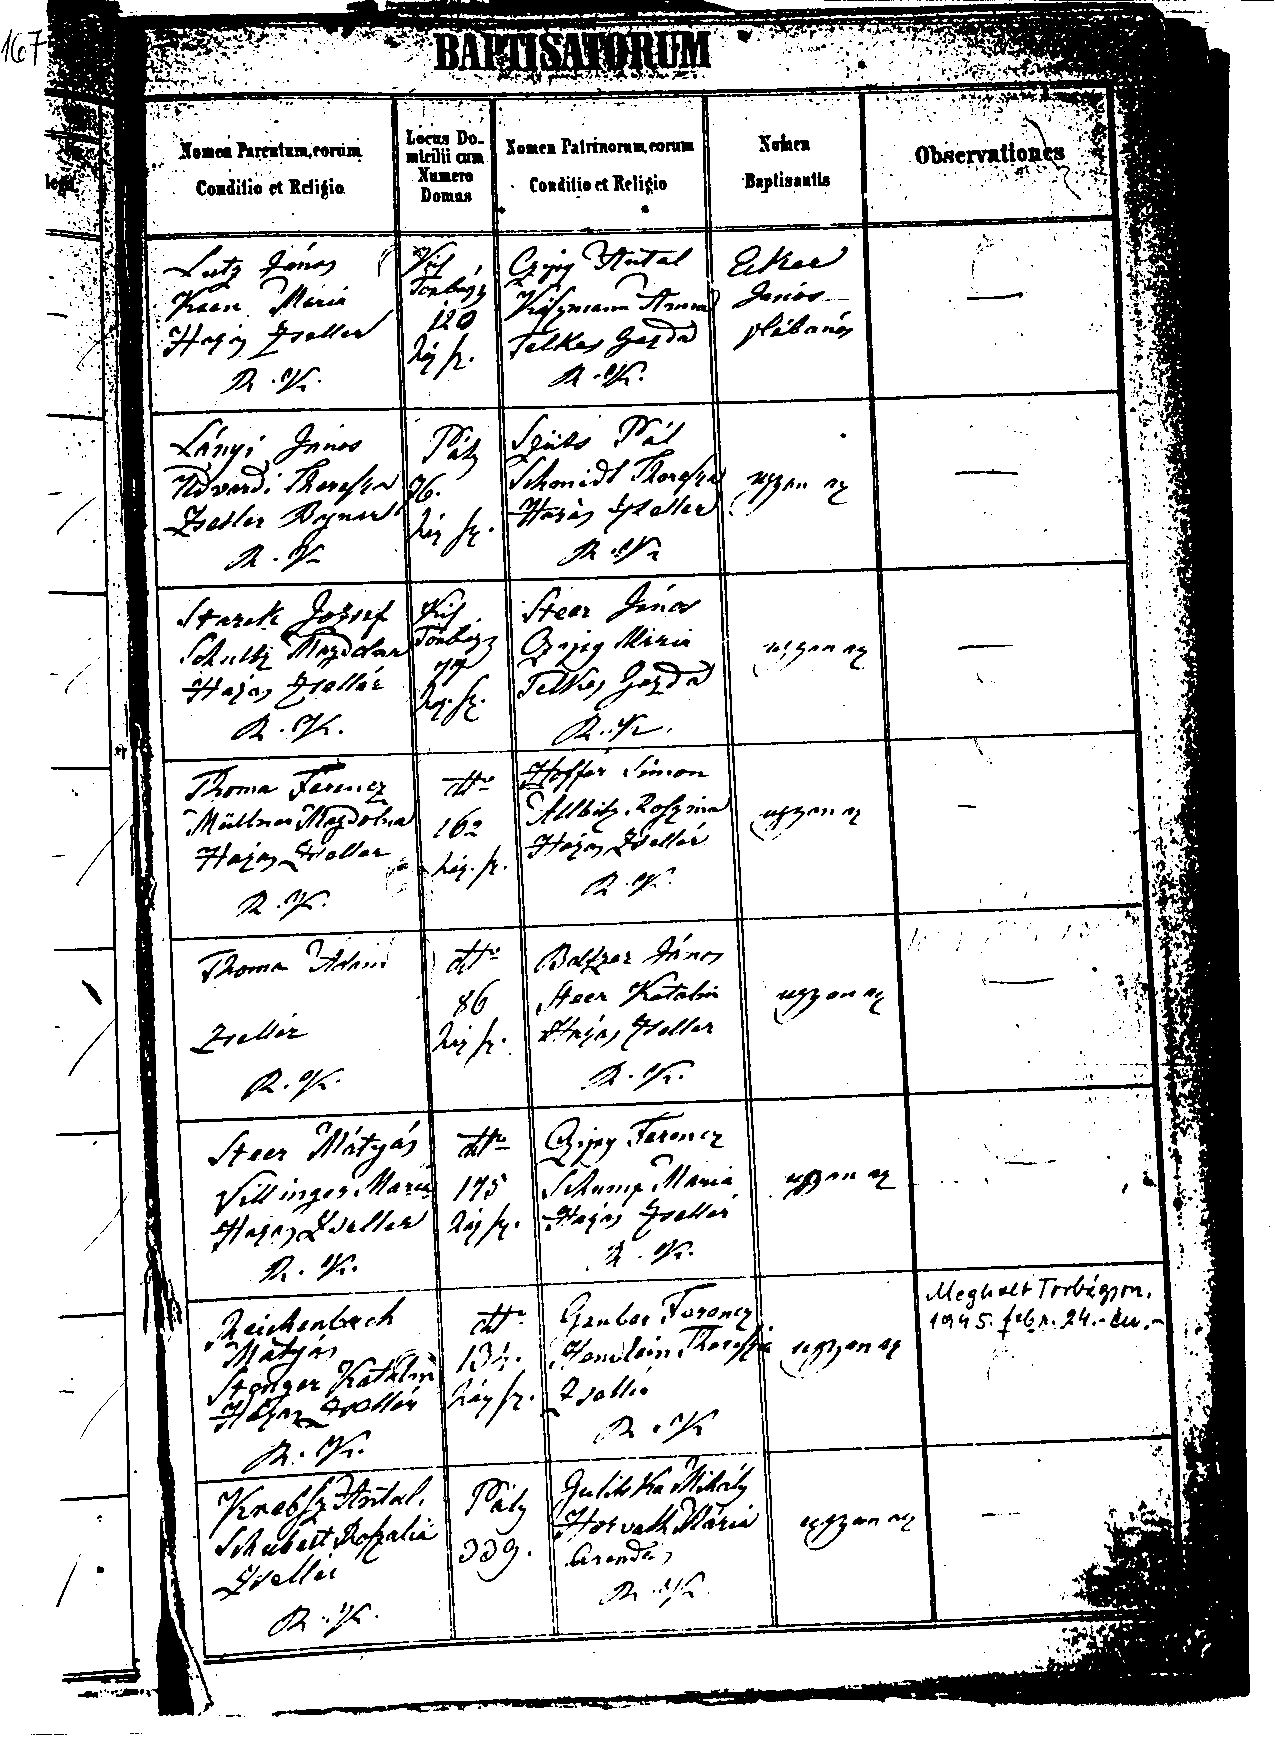 167
BAPTISATORUM
Nomen Parentum, eorum
Conditio et Religio
Locus Do-
micilii cum
Numero
Domus
Nomen Patrinorum, eorum
Conditio et Religio
Nomen
Baptisantis
Observationes
Lutz János
Maria
Hazas Zseller
R. K.
Kis
Torbágy
120
ház sz.
Czijey Antal
Anna
Telkes Gazda
R. K.
János
plébános
—
Lányi János
Udvardi Theresia
Zseller
R. K.
Páty
76.
ház sz.
Szüts Pál
Schmidt Theresia
Hazas Zseller
R. K.
ugyan az
—
Starck József
Schultz Magdolna
Hazas Zsellér
R. K.
Kis
Torbágy
77
ház sz.
Steer János
Czijey Maria
Telkes Gazda
R. K.
ugyan az
—
Thoma Ferencz
Müllner Magdolna
Hazas Zseller
R. K.
dtto
162
ház. sz.
Hoffer Simon
Rozina
Hazas Zsellér
R. K.
ugyan az
—
Thoma Ádám
Zsellér
R. K.
dtto
86
ház sz.
Baltzer János
Steer Katalin
Hazas Zseller
R. K.
ugyan az
—
Steer Mátyás
Villinger Maria
Hazas Zseller
R. K.
dtto
175
ház sz.
Czijey Ferencz
Schump Maria
Hazas Zseller
R. K.
ugyan az
—
Reichenbach
Mátyás
Stenger Katalin
Hazas Zsellér
R. K.
dtto
134.
ház sz.
Gauber Ferencz
Theresia
Zsellér
R. K.
ugyan az
Meghalt Torbágyon,
1945. febr. 24.-én.-
Antal.
Schubert Rozalia
Zsellér
R. K.
Páty
339.
Guliska Mihály
Horvath Mária
Árendás
R. K.
ugyan az
—